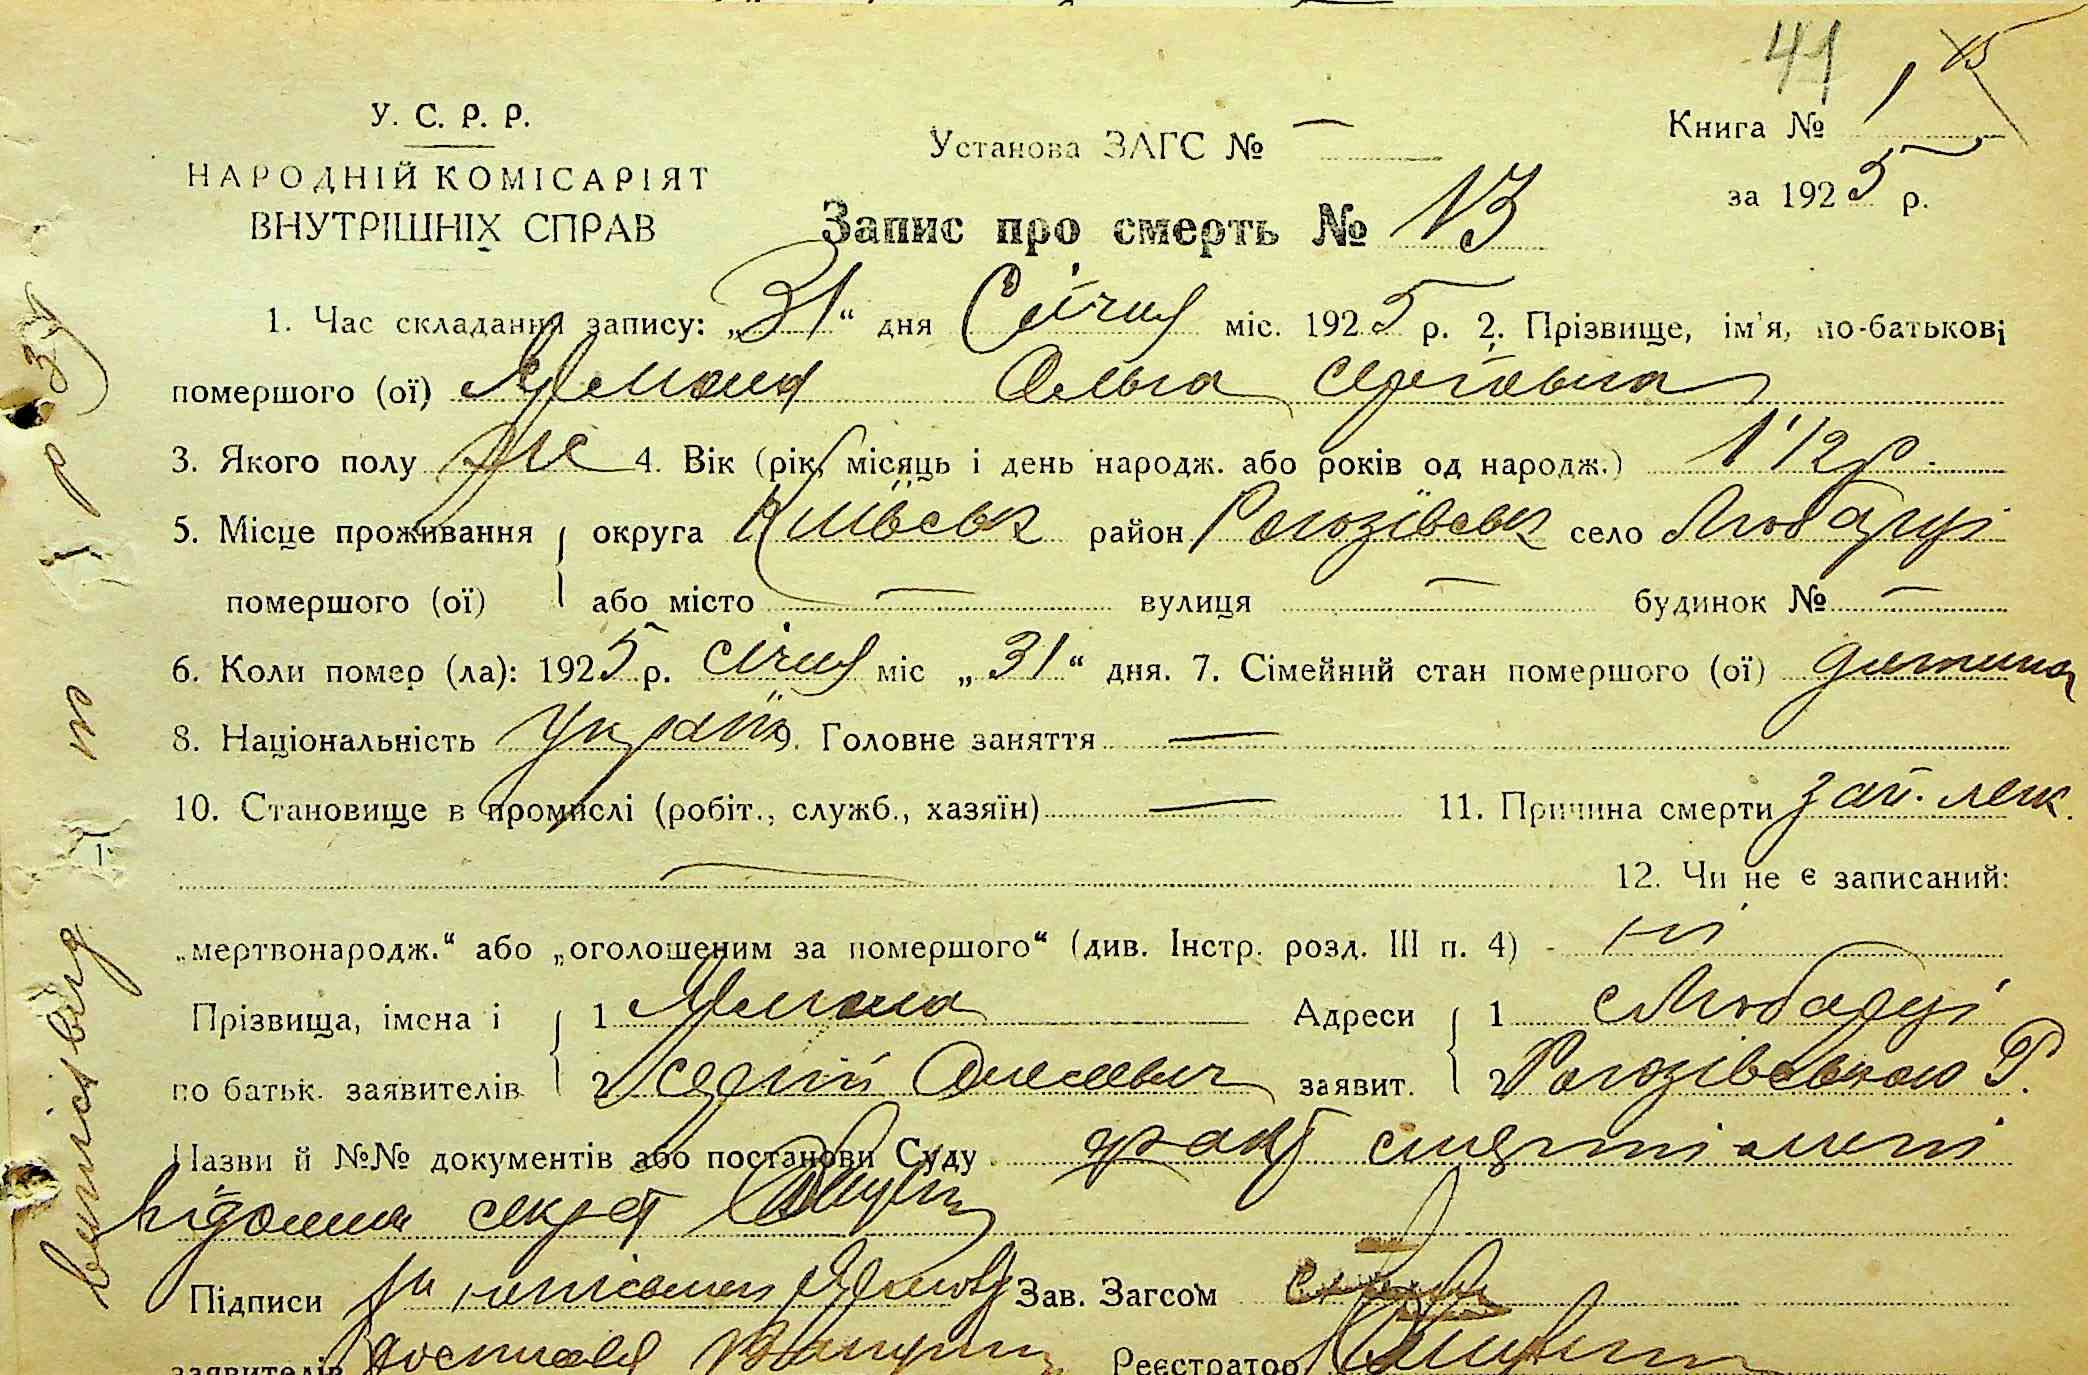 41
15
У. С. Р. Р.
НАРОДНІЙ КОМІСАРІЯТ
ВНУТРІШНІХ СПРАВ
Установа ЗАГС № —
Книга № 1
за 1925 р.
Запис про смерть № 13
1. Час складання запису: „31“ дня Січня міс. 1925 р. 2. Прізвище, ім'я, по-батькові
помершого (ої) Ольга Сергіївна
3. Якого полу же 4. Вік (рік, місяць і день народж. або років од народж.) 1 1/2 р.
5. Місце проживання округа Київськ район Рогозівськ село Любарці
помершого (ої) або місто — вулиця — будинок № —
6. Коли помер (ла): 1925 р. січня міс „31“ дня. 7. Сімейний стан помершого (ої) дитина
8. Національність Україн 9. Головне заняття —
10. Становище в промислі (робіт., служб., хазяїн) — 11. Причина смерти зап. лек.
— 12. Чи не є записаний:
„мертвонародж.“ або „оголошеним за помершого“ (див. Інстр. розд. III п. 4) - ні
Прізвища, імена і 1 Адреси 1 с Любарці
по батьк. заявителів 2 Сергій заявит. 2 Рогозівського Р.
Назви й №№ документів або постанови Суду факт смерти мені
відомий секрет
Підписи Зав. Загсом
заявителів Реєстратор